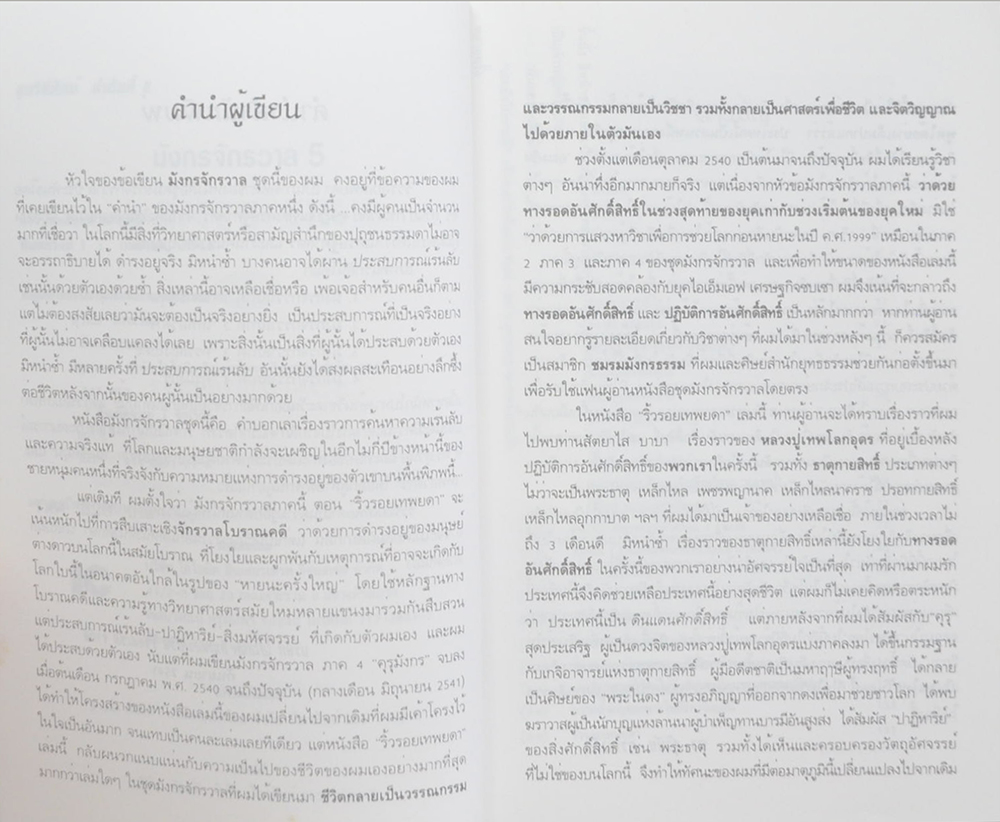 คำนำผู้เขียน
หัวใจของข้อเขียน มังกรจักรวาล ชุดนี้ของผม คงอยู่ที่ข้อความของผม
ที่เคยเขียนไว้ใน "คำนำ" ของมังกรจักรวาลภาคหนึ่ง ดังนี้ ...คงมีผู้คนเป็นจำนวน
มากที่เชื่อว่า ในโลกนี้มีสิ่งที่วิทยาศาสตร์หรือสามัญสำนึกของปุถุชนธรรมดาไม่อาจ
จะอรรถาธิบายได้ ดำรงอยู่จริง มิหนำซ้ำ บางคนอาจได้ผ่าน ประสบการณ์เร้นลับ
เช่นนั้นด้วยตัวเองด้วยซ้ำ สิ่งเหล่านี้อาจเหลือเชื่อหรือ เพ้อเจ้อสำหรับคนอื่นก็ตาม
แต่ไม่ต้องสงสัยเลยว่ามันจะต้องเป็นจริงอย่างยิ่ง เป็นประสบการณ์ที่เป็นจริงอย่าง
ที่ผู้นั้นไม่อาจเคลือบแคลงได้เลย เพราะสิ่งนั้นเป็นสิ่งที่ผู้นั้นได้ประสบด้วยตัวเอง
มิหนำซ้ำ มีหลายครั้งที่ ประสบการณ์เร้นลับ อันนั้นยังได้ส่งผลสะเทือนอย่างลึกซึ้ง
ต่อชีวิตหลังจากนั้นของคนผู้นั้นเป็นอย่างมากด้วย
หนังสือมังกรจักรวาลชุดนี้คือ คำบอกเล่าเรื่องราวการค้นหาความเร้นลับ
และความจริงแท้ ที่โลกและมนุษยชาติกำลังจะเผชิญในอีกไม่กี่ปีข้างหน้านี้ของ
ชายหนุ่มคนหนึ่งที่จริงจังกับความหมายแห่งการดำรงอยู่ของตัวเขาบนพื้นพิภพนี้...
แต่เดิมที ผมตั้งใจว่า มังกรจักรวาลภาคนี้ ตอน "ริ้วรอยเทพยดา" จะ
เน้นหนักไปที่การสืบเสาะเชิงจักรวาลโบราณคดี ว่าด้วยการดำรงอยู่ของมนุษย์
ต่างดาวบนโลกนี้ในสมัยโบราณ ที่โยงใยและผูกพันกับเหตุการณ์ที่อาจจะเกิดกับ
โลกใบนี้ในอนาคตอันใกล้ในรูปของ "หายนะครั้งใหญ่" โดยใช้หลักฐานทาง
โบราณคดีและความรู้ทางวิทยาศาสตร์สมัยใหม่หลายแขนงมาร่วมกันสืบสวน
แต่ประสบการณ์เร้นลับ-ปาฏิหาริย์-สิ่งมหัศจรรย์ ที่เกิดกับตัวผมเอง และผม
ได้ประสบด้วยตัวเอง นับแต่ที่ผมเขียนมังกรจักรวาล ภาค 4 "คุรุมังกร" จบลง
เมื่อต้นเดือน กรกฎาคม พ.ศ. 2540 จนถึงปัจจุบัน (กลางเดือน มิถุนายน 2541)
ได้ทำให้โครงสร้างของหนังสือเล่มนี้ของผมเปลี่ยนไปจากเดิมที่ผมมีเค้าโครงไว้
ในใจเป็นอันมาก จนแทบเป็นคนละเล่มเลยทีเดียว แต่หนังสือ "ริ้วรอยเทพยดา"
เล่มนี้ กลับผนวกแนบแน่นกับความเป็นไปของชีวิตของผมเองอย่างมากที่สุด
มากกว่าเล่มใดๆ ในชุดมังกรจักรวาลที่ผมได้เขียนมา ชีวิตกลายเป็นวรรณกรรม
และวรรณกรรมกลายเป็นวิชชา รวมทั้งกลายเป็นศาสตร์เพื่อชีวิต และจิตวิญญาณ
ไปด้วยภายในตัวมันเอง
ช่วงตั้งแต่เดือนตุลาคม 2540 เป็นต้นมาจนถึงปัจจุบัน ผมได้เรียนรู้วิชา
ต่างๆ อันน่าทึ่งอีกมากมายก็จริง แต่เนื่องจากหัวข้อมังกรจักรวาลภาคนี้ ว่าด้วย
ทางรอดอันศักดิ์สิทธิ์ในช่วงสุดท้ายของยุคเก่ากับช่วงเริ่มต้นของยุคใหม่ มิใช่
"ว่าด้วยการแสวงหาวิชาเพื่อการช่วยโลกก่อนหายนะในปี ค.ศ.1999" เหมือนในภาค
2 ภาค 3 และภาค 4 ของชุดมังกรจักรวาล และเพื่อทำให้ขนาดของหนังสือเล่มนี้
มีความกระชับสอดคล้องกับยุคไอเอ็มเอฟ เศรษฐกิจซบเซา ผมจึงเน้นที่จะกล่าวถึง
ทางรอดอันศักดิ์สิทธิ์ และ ปฏิบัติการอันศักดิ์สิทธิ์ เป็นหลักมากกว่า หากท่านผู้อ่าน
สนใจอยากรู้รายละเอียดเกี่ยวกับวิชาต่างๆ ที่ผมได้มาในช่วงหลังๆ นี้ ก็ควรสมัคร
เป็นสมาชิก ชมรมมังกรธรรม ที่ผมและศิษย์สำนักยุทธธรรมช่วยกันก่อตั้งขึ้นมา
เพื่อรับใช้แฟนผู้อ่านหนังสือชุดมังกรจักรวาลโดยตรง
ในหนังสือ "ริ้วรอยเทพยดา" เล่มนี้ ท่านผู้อ่านจะได้ทราบเรื่องราวที่ผม
ไปพบท่านสัตยาไส บาบา เรื่องราวของ หลวงปู่เทพโลกอุดร ที่อยู่เบื้องหลัง
ปฏิบัติการอันศักดิ์สิทธิ์ของพวกเราในครั้งนี้ รวมทั้ง ธาตุกายสิทธิ์ ประเภทต่างๆ
ไม่ว่าจะเป็นพระธาตุ เหล็กไหล เพชรพญานาค เหล็กไหลนาคราช ปรอทกายสิทธิ์
เหล็กไหลอุกกาบาต ฯลฯ ที่ผมได้มาเป็นเจ้าของอย่างเหลือเชื่อ ภายในช่วงเวลาไม่
ถึง 3 เดือนดี มิหนำซ้ำ เรื่องราวของธาตุกายสิทธิ์เหล่านี้ยังโยงใยกับทางรอด
อันศักดิ์สิทธิ์ ในครั้งนี้ของพวกเราอย่างน่าอัศจรรย์ใจเป็นที่สุด เท่าที่ผ่านมาผมรัก
ประเทศนี้จึงคิดช่วยเหลือประเทศนี้อย่างสุดชีวิต แต่ผมก็ไม่เคยคิดหรือตระหนัก
ว่า ประเทศนี้เป็น ดินแดนศักดิ์สิทธิ์ แต่ภายหลังจากที่ผมได้สัมผัสกับ"คุรุ"
สุดประเสริฐ ผู้เป็นดวงจิตของหลวงปู่เทพโลกอุดรแบ่งภาคลงมา ได้ขึ้นกรรมฐาน
กับเกจิอาจารย์แห่งธาตุกายสิทธิ์ ผู้มีอดีตชาติเป็นมหาฤาษีผู้ทรงฤทธิ์ ได้กลาย
เป็นศิษย์ของ "พระในดง" ผู้ทรงอภิญญาที่ออกจากดงเพื่อมาช่วยชาวโลก ได้พบ
ฆราวาสผู้เป็นนักบุญแห่งล้านนาผู้บำเพ็ญทานบารมีอันสูงส่ง ได้สัมผัส "ปาฏิหาริย์"
ของสิ่งศักดิ์สิทธิ์ เช่น พระธาตุ รวมทั้งได้เห็นและครอบครองวัตถุอัศจรรย์
ที่ไม่ใช่ของบนโลกนี้ จึงทำให้ทัศนะของผมที่มีต่อมาตุภูมินี้เปลี่ยนแปลงไปจากเดิม